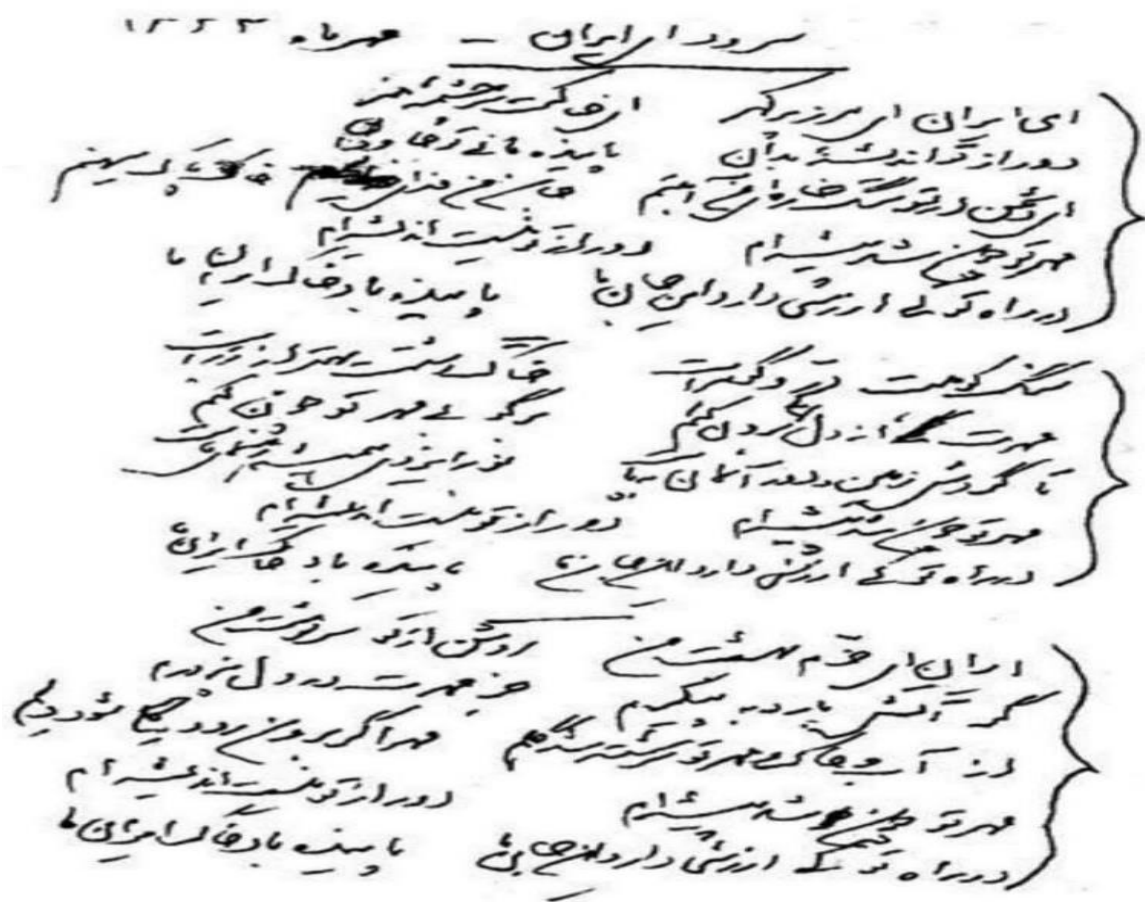 سرود ای ایران - مهر ماه ۱۳۲۳
ای ایران ای مرز پر گهر ای خاکت سرچشمه هنر
دور از تو اندیشه بدان پاینده مانی تو جاودان
ای دشمن ار تو سنگ خاره‌ای من آهنم جان من فدای خاک پاک میهنم
مهر تو چون شد پیشه‌ام دور از تو نیست اندیشه‌ام
در راه تو کی ارزشی دارد این جان ما پاینده باد خاک ایران ما
سنگ کوهت در و گوهر است خاک دشتت بهتر از زر است
مهرت از دل کی برون کنم برگو بی مهر تو چون کنم
تا گردش زمین و دور آسمان بپاست نور ایزدی همیشه رهنمای ماست
مهر تو چون شد پیشه‌ام دور از تو نیست اندیشه‌ام
در راه تو کی ارزشی دارد این جان ما پاینده باد خاک ایران ما
ایران ای خرم بهشت من روشن از تو سرنوشت من
گر آتش بارد به پیکرم جز مهرت در دل نپرورم
از آب و خاک و مهر تو سرشته شد گلم مهر اگر برون رود تهی شود دلم
مهر تو چون شد پیشه‌ام دور از تو نیست اندیشه‌ام
در راه تو کی ارزشی دارد این جان ما پاینده باد خاک ایران ما